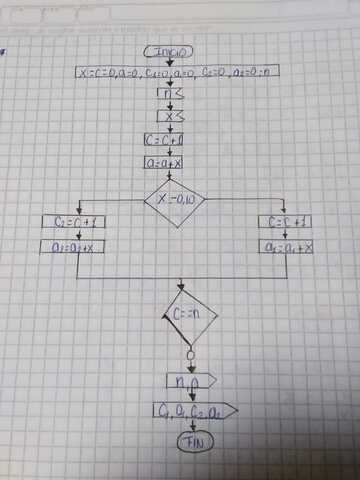 INICIO
X=C=0,a=0, C1=0,a1=0, C2=0, a2=0=n
n
X
C=C+1
a=a+x
X=-0,10
C2=C+1
C=C+1
a2=a2+x
a1=a1+x
C==n
n,a
C1, a1, C2, a2
FIN